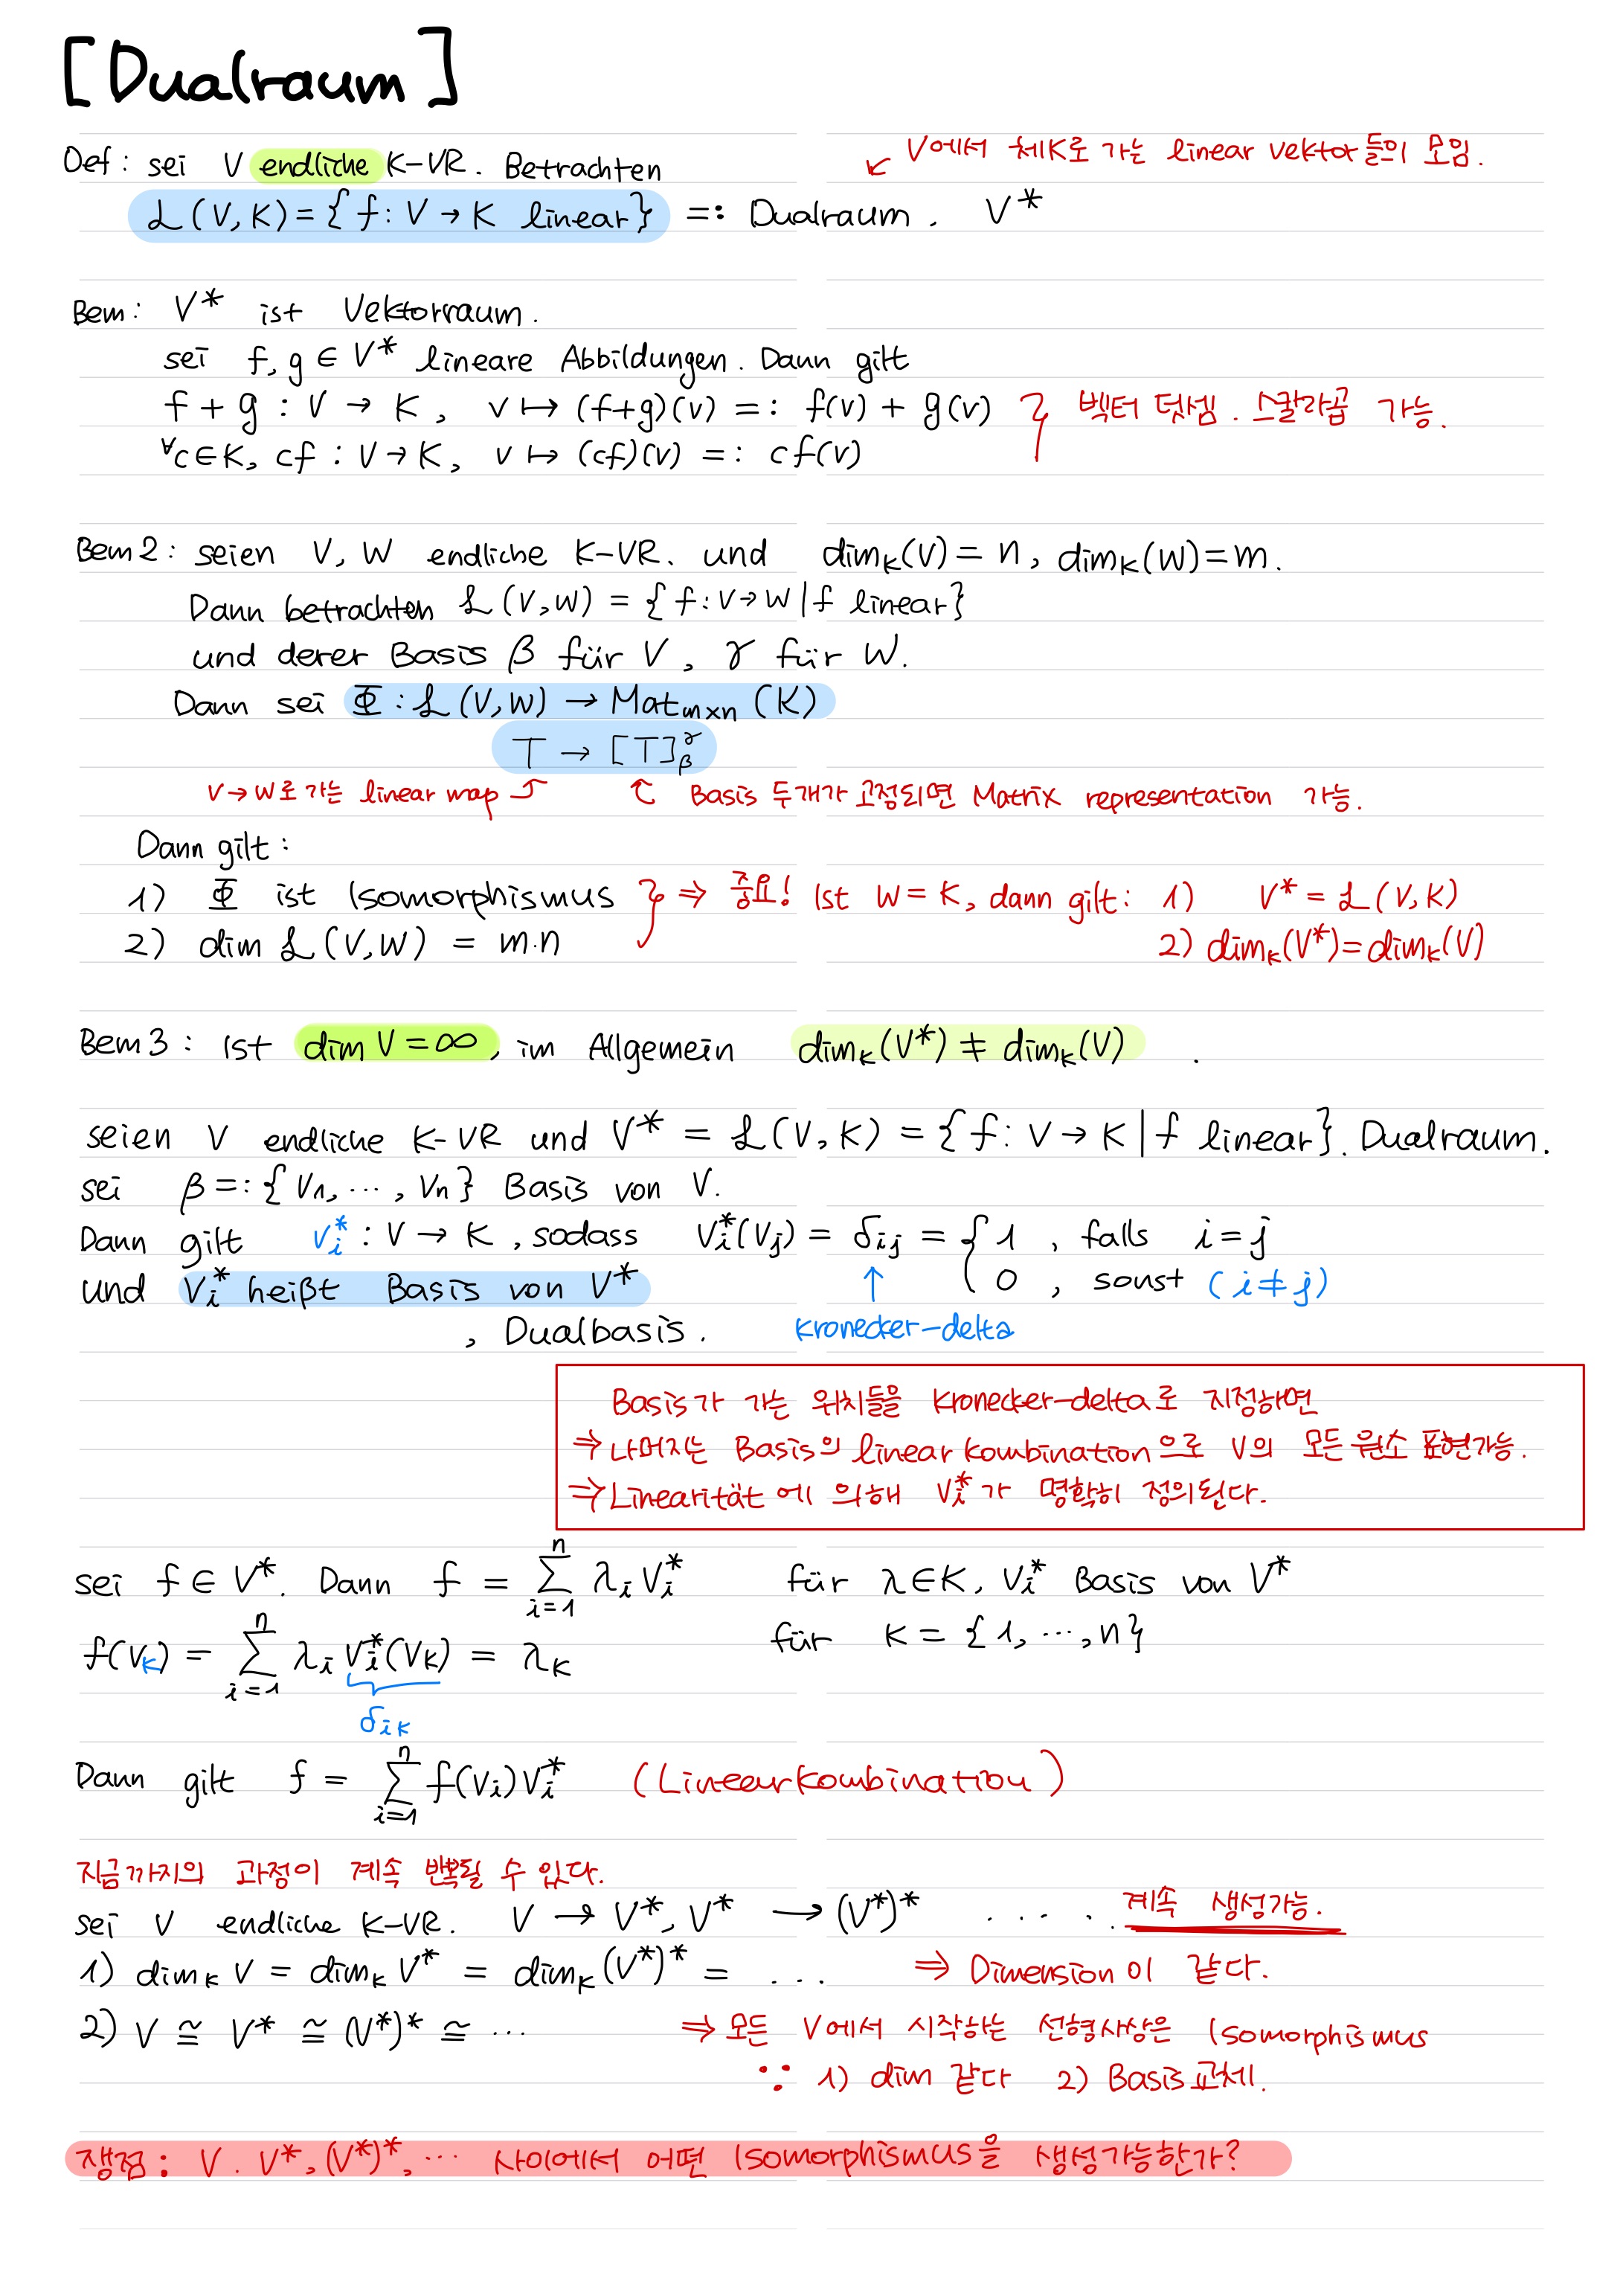 [Dualraum]
V에서 체K로 가는 linear Vektor들의 모임.
Def: sei V endliche K-VR. Betrachten
ℒ(V,K)={f:V→K linear} =: Dualraum. V*
Bem: V* ist Vektorraum.
sei f,g∈V* lineare Abbildungen. Dann gilt
f+g : V → K, v ↦ (f+g)(v) =: f(v) + g(v) } 벡터 덧셈. 스칼라곱 가능.
∀c∈K, cf : V→K, v ↦ (cf)(v) =: cf(v)
Bem2: seien V, W endliche K-VR. und dimₖ(V)=n, dimₖ(W)=m.
Dann betrachten ℒ(V,W) = {f:V→W|f linear}
und derer Basis β für V, γ für W.
Dann sei Φ:ℒ(V,W) → Matₘₓₙ(K)
T → [T]_β^γ
V→W로 가는 linear map ↗ ↖ Basis 두개가 고정되면 Matrix representation 가능.
Dann gilt:
1) Φ ist Isomorphismus } ⇒ 중요! Ist W=K, dann gilt: 1) V* = ℒ(V,K)
2) dim ℒ(V,W) = m·n 2) dimₖ(V*)=dimₖ(V)
Bem3: Ist dim V=∞, im Allgemein dimₖ(V*) ≠ dimₖ(V).
seien V endliche K-VR und V* = ℒ(V,K) = {f:V→K|f linear}. Dualraum.
sei β=:{v₁,⋯,vₙ} Basis von V.
Dann gilt vᵢ* : V→K, sodass vᵢ*(vⱼ) = δᵢⱼ = { 1, falls i=j
und vᵢ* heißt Basis von V* ↑ 0, sonst (i≠j)
, Dualbasis. Kronecker-delta
Basis가 가는 위치들을 Kronecker-delta로 지정하면
⇒ 나머지는 Basis의 linear kombination으로 V의 모든 원소 표현가능.
⇒ Linearität에 의해 vᵢ*가 명확히 정의된다.
sei f∈V*. Dann f = ∑_{i=1}^{n} λᵢvᵢ* für λ∈K, vᵢ* Basis von V*
f(vₖ) = ∑_{i=1}^{n} λᵢvᵢ*(vₖ) = λₖ für k={1,⋯,n}
δᵢₖ
Dann gilt f = ∑_{i=1}^{n} f(vᵢ)vᵢ* (Linearkombination)
지금까지의 과정이 계속 반복될 수 있다.
sei V endliche K-VR. V → V*, V* → (V*)* ..... 계속 생성가능.
1) dimₖ V = dimₖ V* = dimₖ (V*)* = ... ⇒ Dimension이 같다.
2) V ≅ V* ≅ (V*)* ≅ ⋯ ⇒ 모든 V에서 시작하는 선형사상은 Isomorphismus
∵ 1) dim 같다 2) Basis교체.
쟁점: V. V*, (V*)*, ⋯ 사이에서 어떤 Isomorphismus을 생성가능한가?